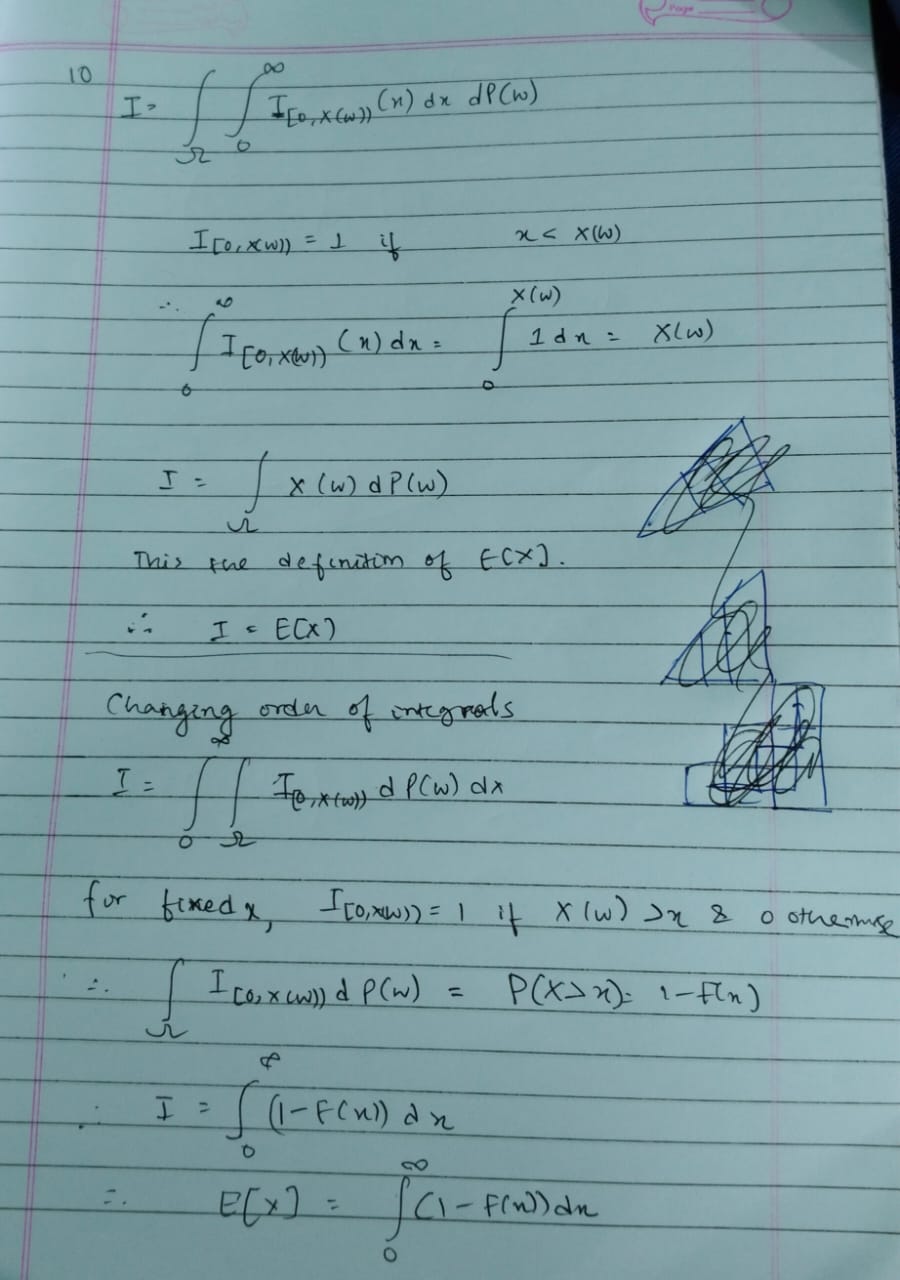 Page
10
I = ∫_Ω ∫_0^∞ I_[0,X(w)) (x) dx dP(w)
I_[0,X(w)) = 1 if x < X(w)
∴ ∫_0^∞ I_[0,X(w)) (x) dx = ∫_0^X(w) 1 dx = X(w)
I = ∫_Ω X(w) dP(w)
This the definition of E[X].
∴ I = E[X]
Changing order of integrals
I = ∫_0^∞ ∫_Ω I_[0,X(w)) dP(w) dx
for fixed x, I_[0,X(w)) = 1 if X(w) > x & 0 otherwise
∴ ∫_Ω I_[0,X(w)) dP(w) = P(X>x) = 1-F(x)
∴ I = ∫_0^∞ (1-F(x)) dx
∴ E[X] = ∫_0^∞ (1-F(x)) dx